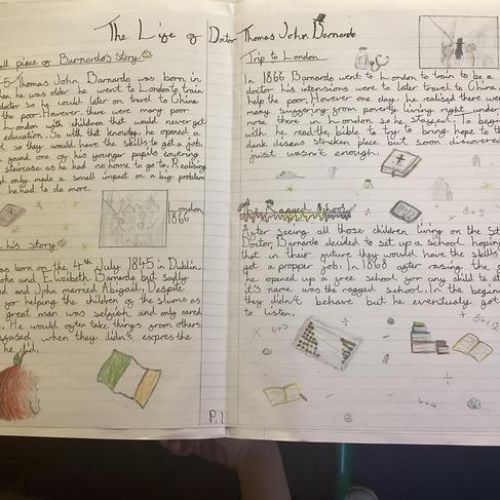 The Life of Doctor Thomas John Barnardo
ll piece of Barnardo's story
5 Thomas John Barnardo was born in
hen he was older he went to London to train
doctor so he could later on travel to China
the poor. However there were many poor
London was children that would never get
education. So with that knowledge he opened a
so they would have the skills to get a job.
found one of his younger pupils
staircase as he had no home to go to. Realising
only made a small impact on a big problem
he had to do more.
London
1866
his story
as born on the 4th July 1845 in Dublin.
John and Elizabeth Barnardo but sadly
and John married Abigail. Despite
for helping the children of the slums as
great man was selfish and only cared
He would often take things from others
when they didn't
he did.
P.1
Trip to London
In 1866 Barnardo went to London to train to be a
doctor his intensions were to later travel to China
help the poor. However one day he realised there we
many suffering from poverty living right under
nose there in London so he stayed. To begin
with he read the bible to try to bring hope to the
dark diseas stricken place but soon discovered
just wasn't enough.
The Ragged School
After seeing all those children living on the st
Doctor Barnardo decided to set up a school hoping
that in their future they would have the skills
get a propper job. In 1868 after rasing the
he opened up a free school for any child to at
it's name was the ragged school. In the beginning
they didn't behave but he eventually got
to listen.
8+5